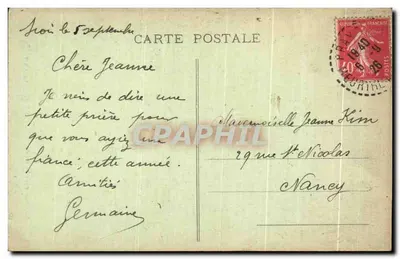 le 5 septembre
CARTE POSTALE
Chère Jeanne
Je viens de dire une
petite prière pour
que vous ayiez un
francé, cette année.
Amitiés
Germaine
Mademoiselle Jeanne Kim
29 rue St Nicolas
Nancy
CPAPHIL
18 40
26